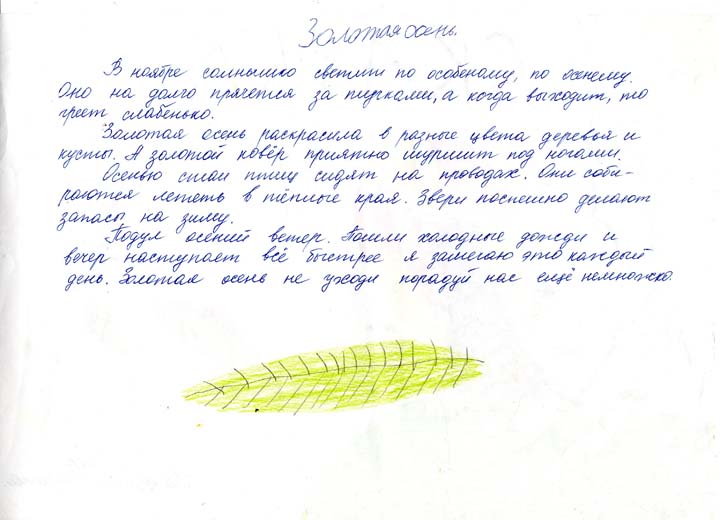 Золотая осень.
В ноябре солнышко светит по особеному, по осенему.
Оно на долго прячется за тучками, а когда выходит, то
греет слабенько.
Золотая осень раскрасила в разные цвета деревья и
кусты. А золотой ковёр приятно шуршит под ногами.
Осенью стаи птиц сидят на проводах. Они соби-
раются лететь в тёплые края. Звери поспешно делают
запасы на зиму.
Подул осений ветер. Пошли холодные дожди и
вечер наступает всё быстрее я замечаю это каждый
день. Золотая осень не уходи порадуй нас ещё немножко.